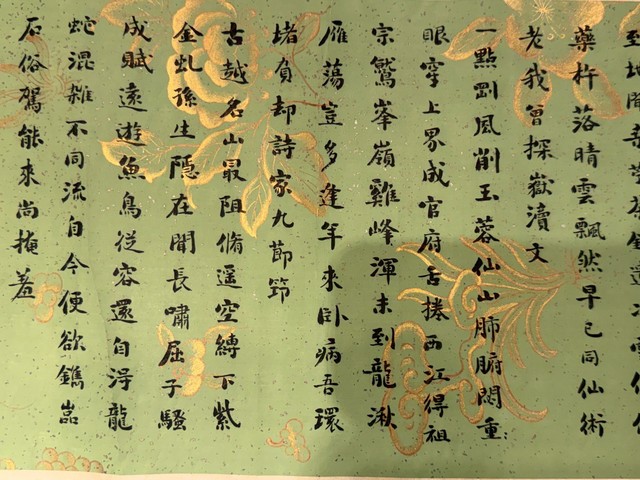 藥杵落晴雲飄然早已同仙術
老我曾探嶽瀆文
一點剛風削玉蓉仙山肺腑閟重:
眼穿上界成官府舌捲西江得祖
宗鷲峯嶺雞峰渾未到龍湫
雁蕩豈多逢年來臥病吾環
堵負却詩家九節筇
古越名山最阻脩遥空縛下紫
金虬孫生隱在聞長嘯屈子騷
成賦遠遊魚鳥從容還自淂龍
蛇混雜不同流自今便欲鐫嵓
石俗駕能來尚掩羞